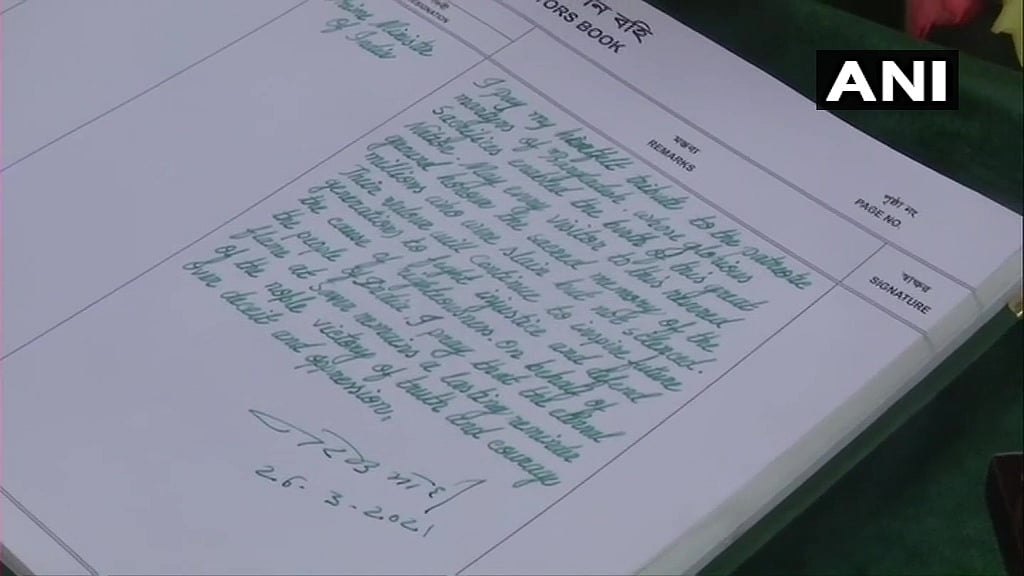 ANI
TORS BOOK
Minister
of India
মন্তব্য
REMARKS
পৃষ্ঠা নং
PAGE NO.
স্বাক্ষর
SIGNATURE
I pay my heartfelt tribute to the patriotic
martyrs of Bangladesh whose glorious
sacrifices enabled the birth of this great
Nation. May every visitor to this revered
ground imbibe the sacred memory of the
millions who were slain but not silenced.
Their valour will continue to inspire future
generations to fight injustice and defend
the cause of righteousness. On behalf of
the people of India, I pray that the eternal
flame at Savar remains a lasting reminder
of the noble victory of truth and courage
over deceit and oppression.
26.3.2021